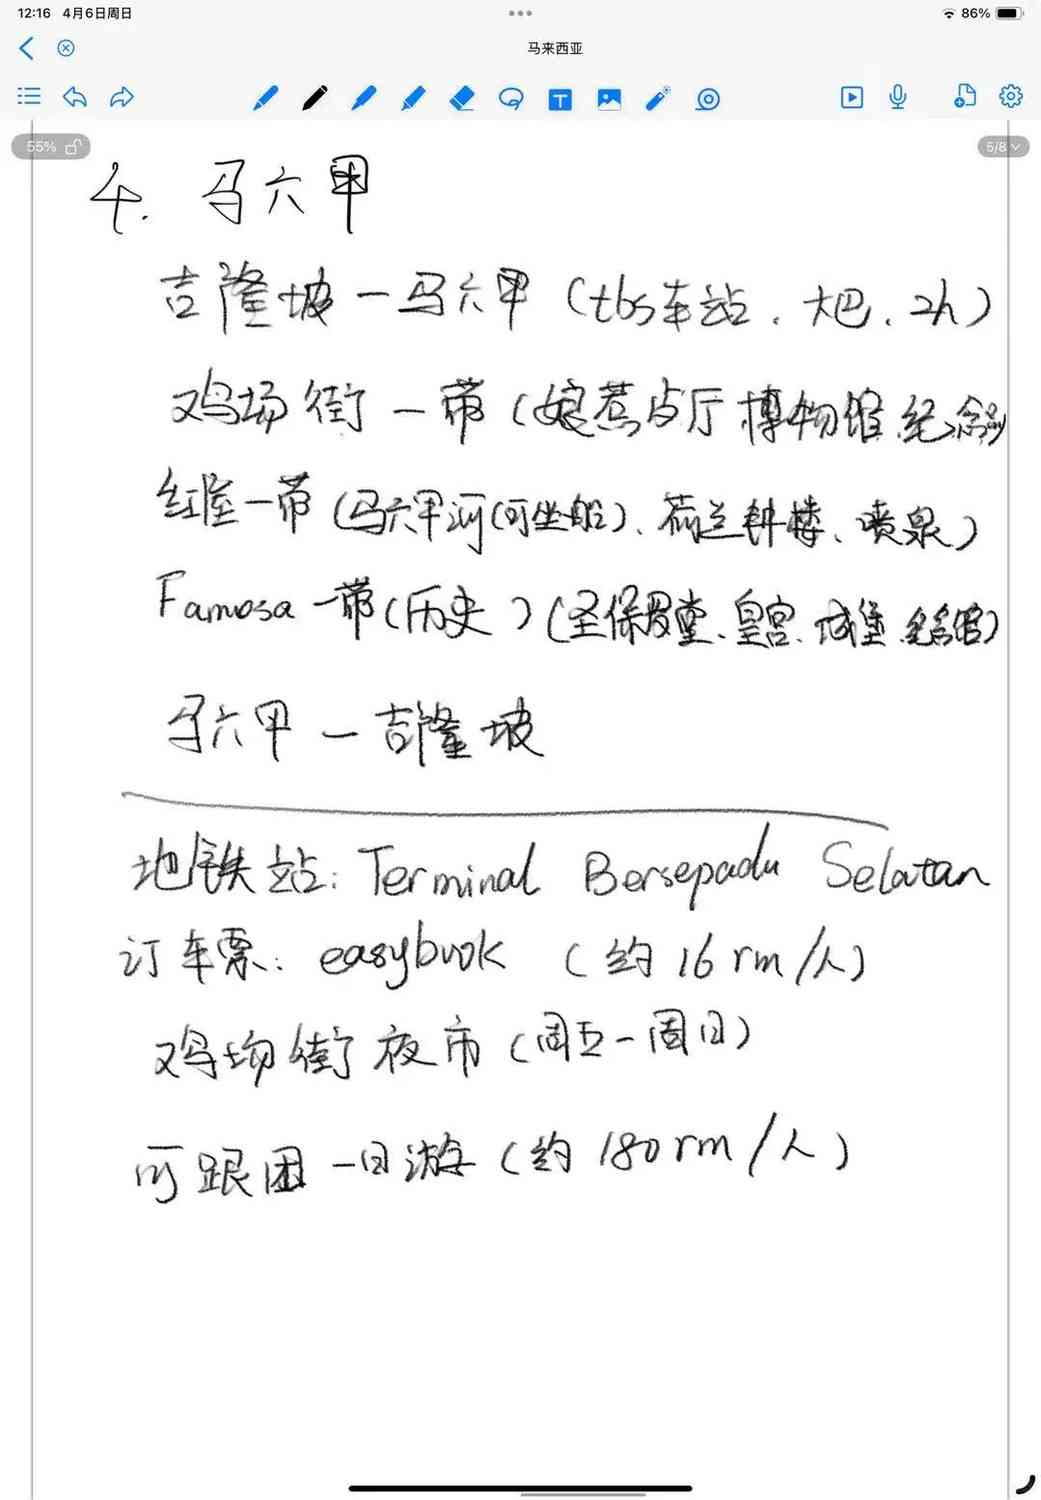 12:16 4月6日周日
86%
马来西亚
55%
5/8
4. 马六甲
吉隆坡一马六甲（tbs车站、大巴、2h）
鸡场街一带（娘惹点厅 博物馆 纪念馆
红屋一带（马六甲河（可坐船）、荷兰钟楼、喷泉）
Famosa 一带（历史）（圣保罗堂、皇宫、城堡、纪念馆）
马六甲 一 吉隆坡
地铁站: Terminal Bersepadu Selatan
订车票: easybook （约16rm/人）
鸡场街 夜市（周五一周日）
可跟团一日游（约180rm/人）